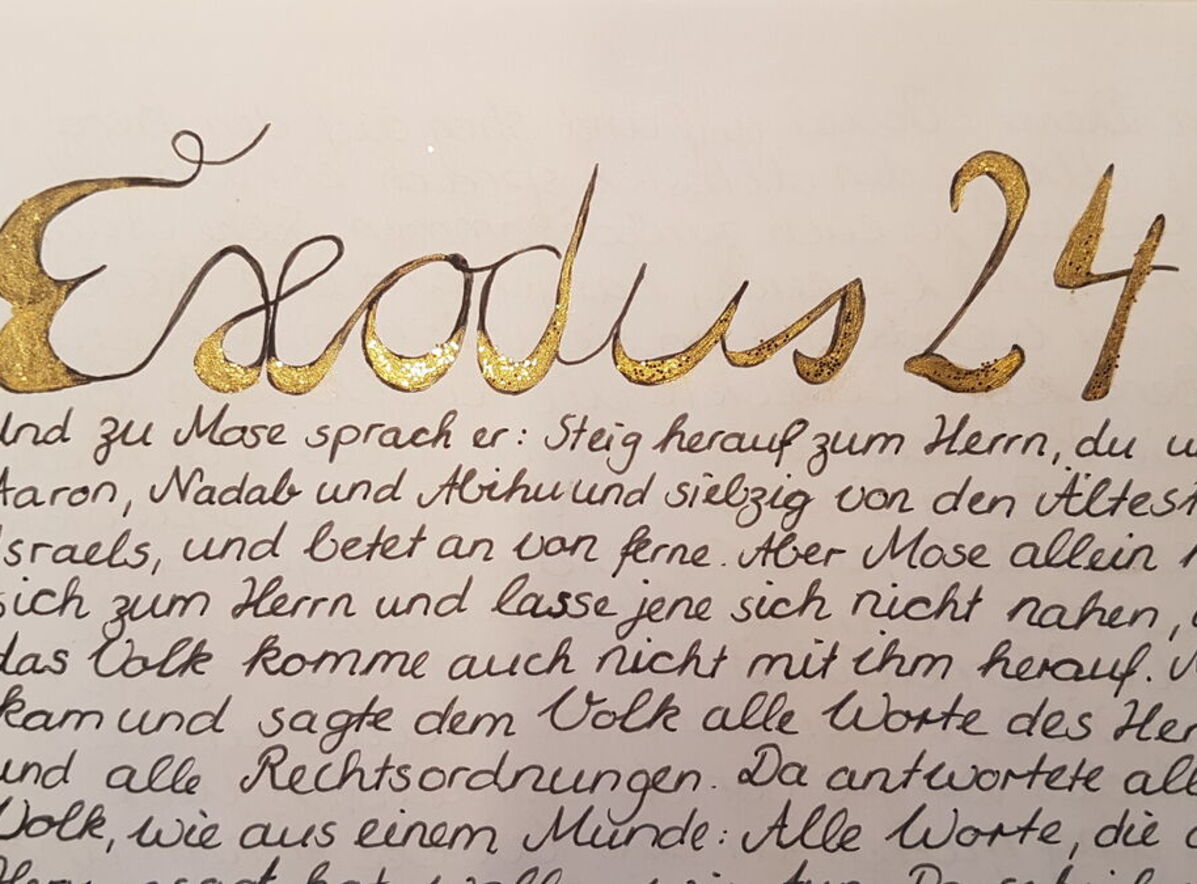 Exodus 24
Und zu Mose sprach er: Steig herauf zum Herrn, du
Aaron, Nadab und Abihu und siebzig von den
Israels, und betet an von ferne. Aber Mose allein
sich zum Herrn und lasse jene sich nicht nahen,
das Volk komme auch nicht mit ihm herauf.
kam und sagte dem Volk alle Worte des
und alle Rechtsordnungen. Da antwortete
Volk, wie aus einem Munde: Alle Worte, die